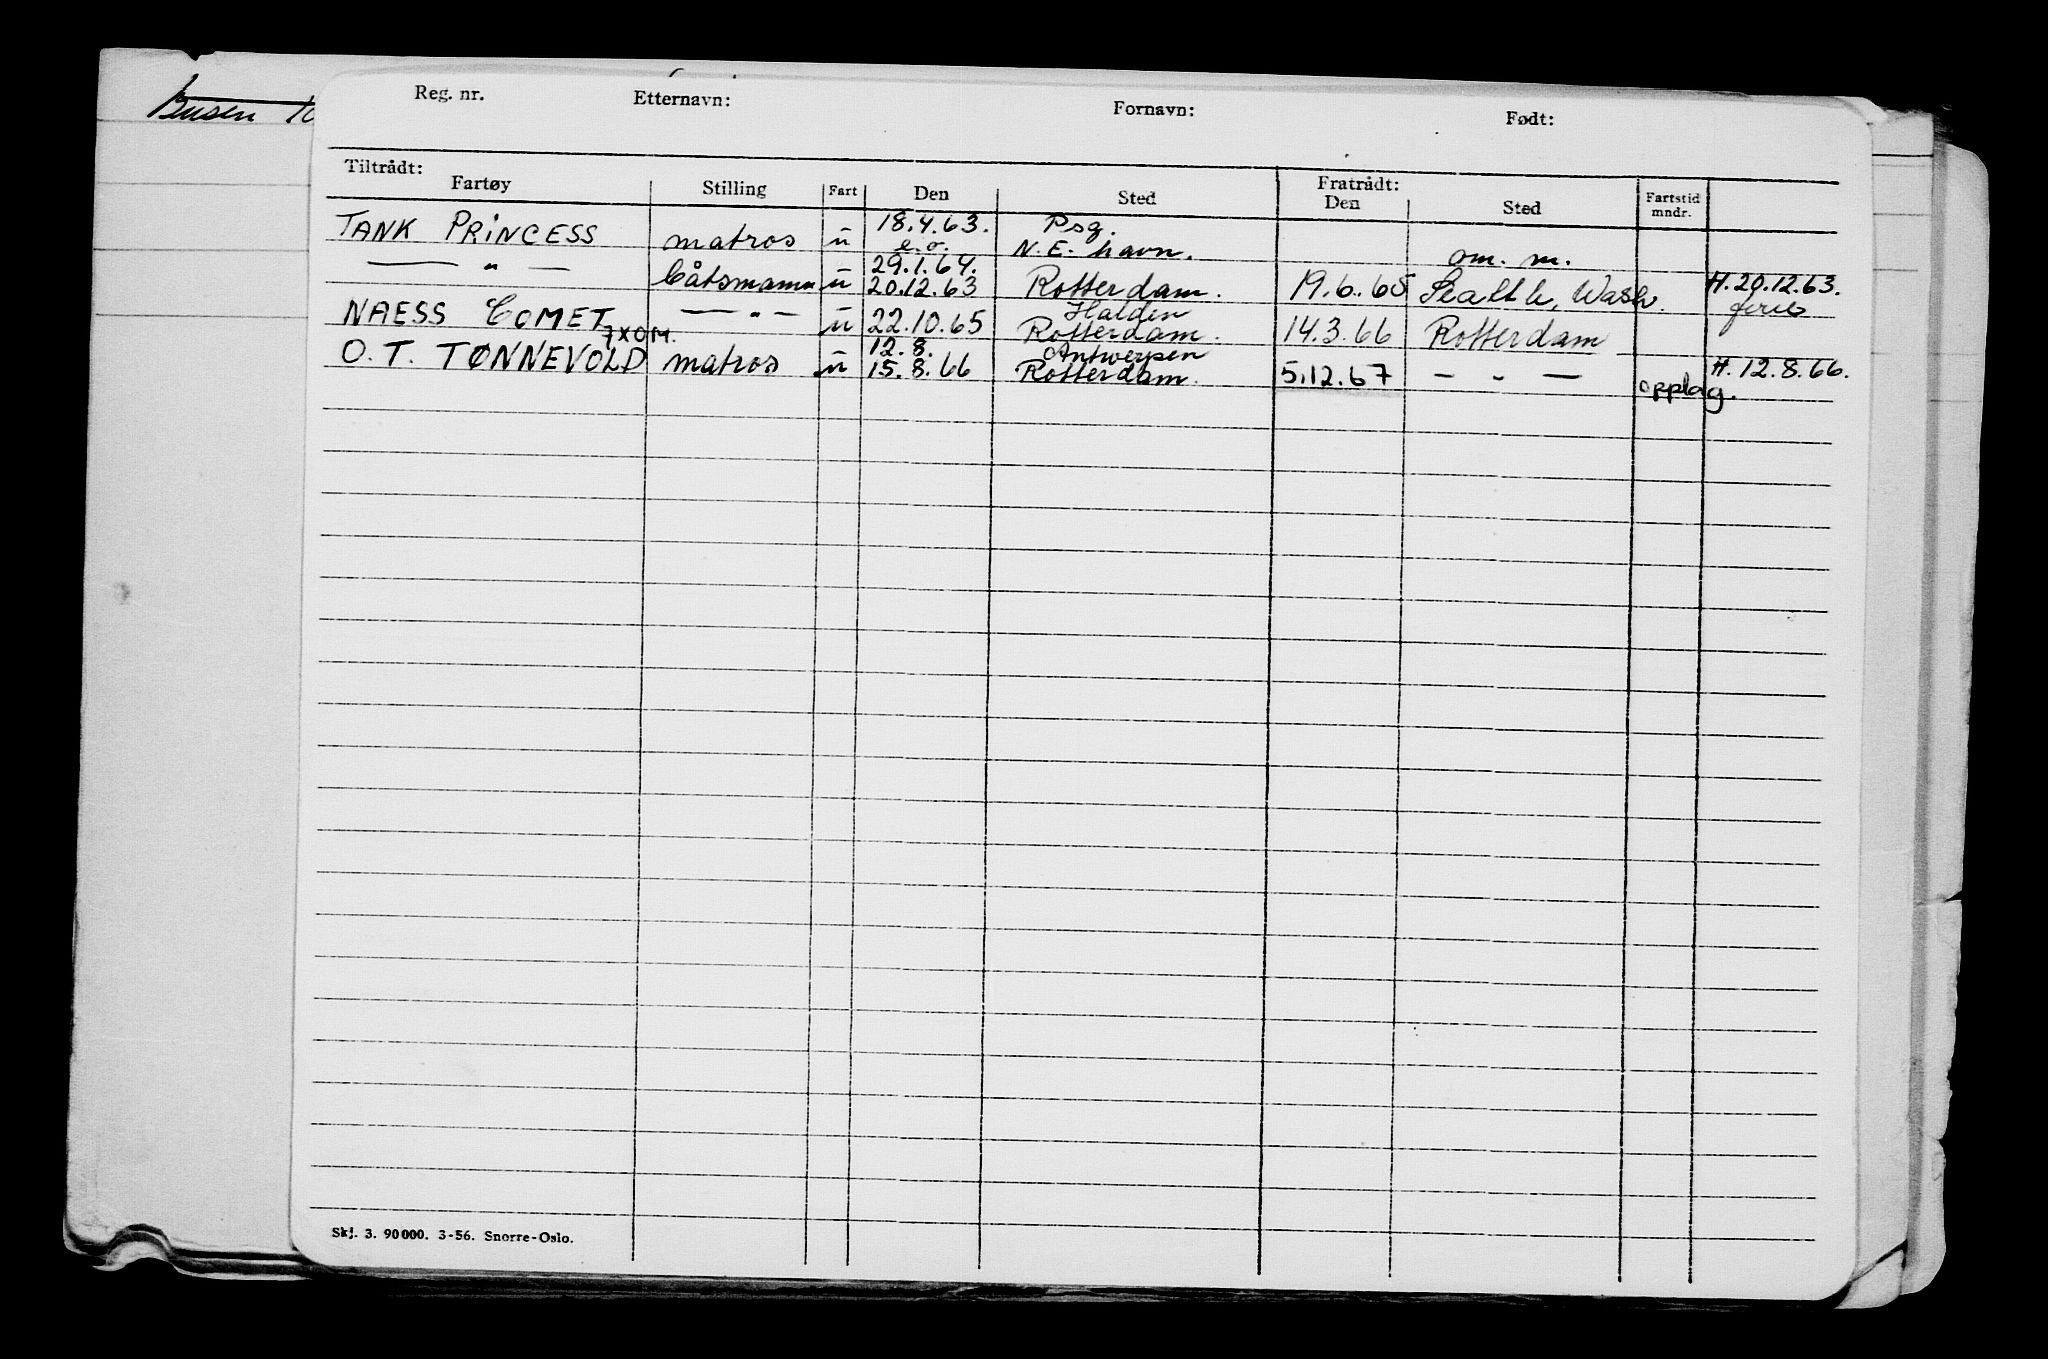 Bensen
Reg. nr. Etternavn: Fornavn: Født:
Tiltrådt: Fratrådt:
Fartøy Stilling Fart Den Sted Den Sted Fartstid mndr.
TANK PRINCESS matros ü 18.4.63. e.o. Psg. N.E. havn. om. m.
— " — båtsmann ü 29.1.64. 20.12.63 Rotterdam. 19.6.65 Seattle, Wash. H. 20.12.63. ferie
NAESS COMET — " — ü 22.10.65 Halden Rotterdam. 14.3.66 Rotterdam
7XOM.
O.T. TØNNEVOLD matros ü 12.8. 15.8.66 Antwerpen Rotterdam. 5.12.67 — " — opplag. H. 12.8.66.
Skj. 3. 90000. 3-56. Snorre-Oslo.